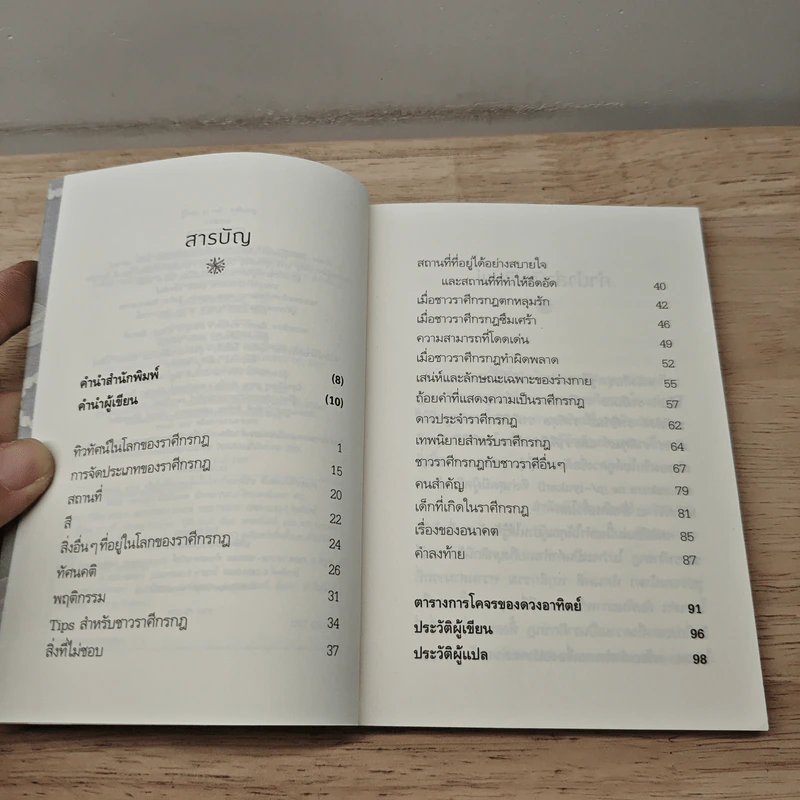 สารบัญ
คำนำสำนักพิมพ์ (8)
คำนำผู้เขียน (10)
ทิวทัศน์ในโลกของราศีกรกฎ 1
การจัดประเภทของราศีกรกฎ 15
สถานที่ 20
สี 22
สิ่งอื่นๆ ที่อยู่ในโลกของราศีกรกฎ 24
ทัศนคติ 26
พฤติกรรม 31
Tips สำหรับชาวราศีกรกฎ 34
สิ่งที่ไม่ชอบ 37
สถานที่ที่อยู่ได้อย่างสบายใจ
และสถานที่ที่ทำให้อึดอัด 40
เมื่อชาวราศีกรกฎตกหลุมรัก 42
เมื่อชาวราศีกรกฎซึมเศร้า 46
ความสามารถที่โดดเด่น 49
เมื่อชาวราศีกรกฎทำผิดพลาด 52
เสน่ห์และลักษณะเฉพาะของร่างกาย 55
ถ้อยคำที่แสดงความเป็นราศีกรกฎ 57
ดาวประจำราศีกรกฎ 62
เทพนิยายสำหรับราศีกรกฎ 64
ชาวราศีกรกฎกับชาวราศีอื่นๆ 67
คนสำคัญ 79
เด็กที่เกิดในราศีกรกฎ 81
เรื่องของอนาคต 85
คำลงท้าย 87
ตารางการโคจรของดวงอาทิตย์ 91
ประวัติผู้เขียน 96
ประวัติผู้แปล 98